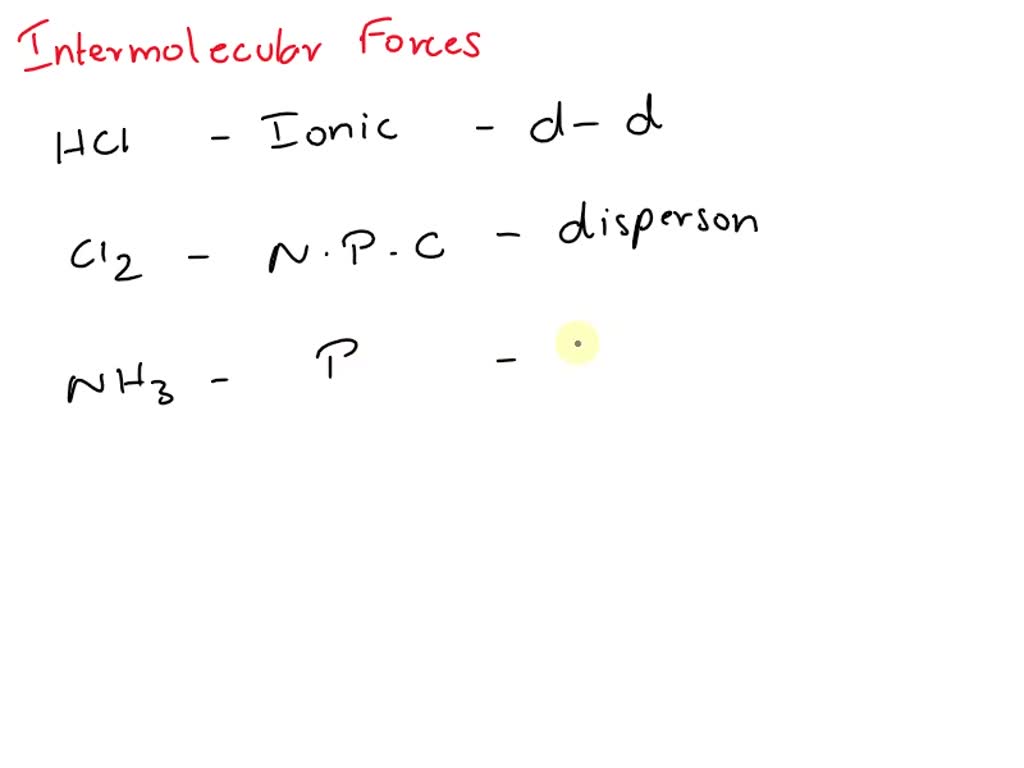 Intermolecular Forces
HCl - Ionic - d-d
Cl2 - N.P.C - disperson
NH3 - P -